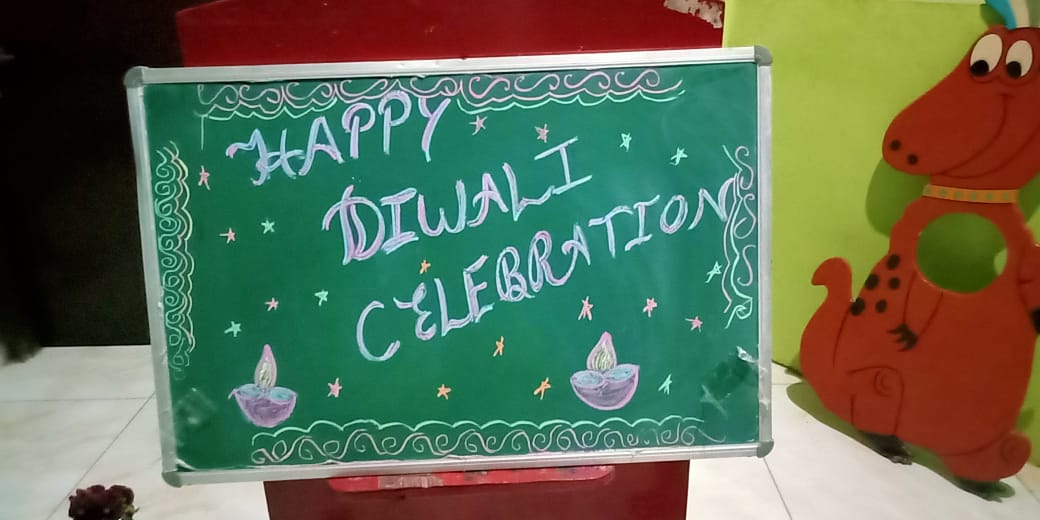 HAPPY
DIWALI
CELEBRATION